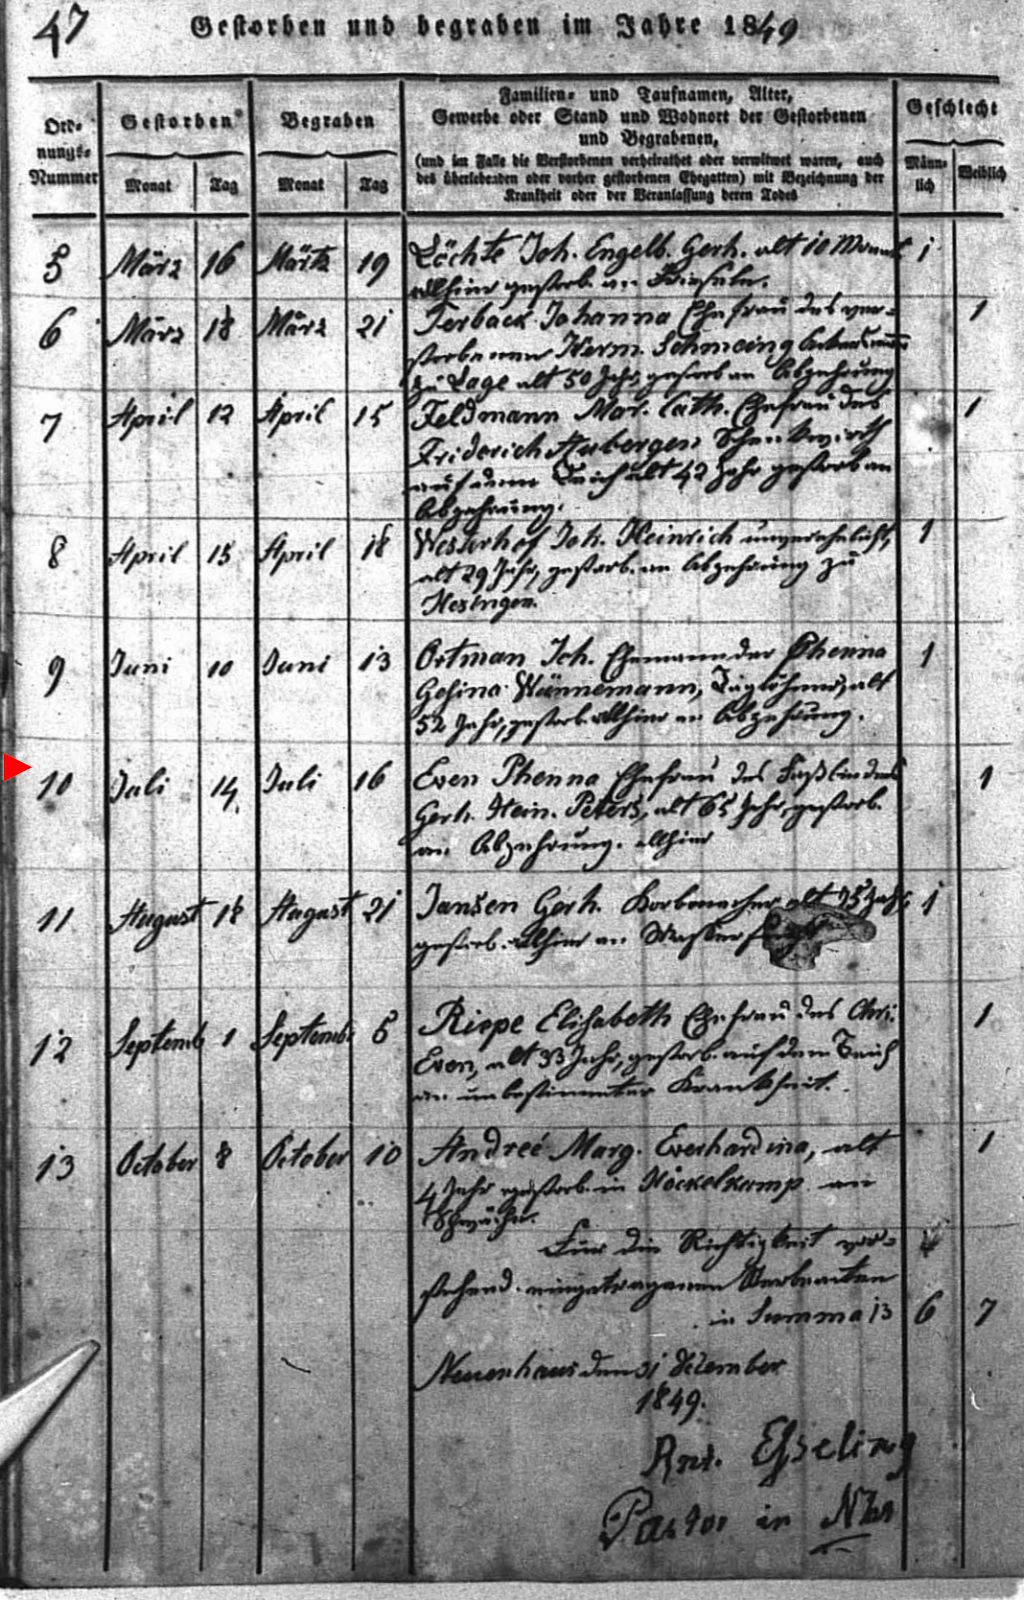 47 Gestorben und begraben im Jahre 1849
Ord-
nungs-
Nummer
Gestorben
Monat Tag
Begraben
Monat Tag
Familien- und Taufnamen, Alter,
Gewerbe oder Stand und Wohnort der Gestorbenen
und Begrabenen,
(und im Falle die Verstorbenen verheirathet oder verwitwet waren, auch
des überlebenden oder vorher gestorbenen Ehegatten) mit Bezeichnung der
Krankheit oder der Veranlassung deren Todes
Geschlecht
Männ-
lich
Weiblich
5 März 16 Märtz 19 Löchte Joh. Engelb. Gerh. alt 10 Monat 1
allhier gestorb. an
6 März 18 März 21 Terback Johanna Ehefrau des ver- 1
storbenen Herm. Schmeing
zu Lage alt 50 Jahr, gestorb an Abzehrung
7 April 12 April 15 Feldmann Mar. Cath. Ehefrau des 1
Friderich Aubergen Schenkwirth
auf dem Teich alt 42 Jahr gestorb an
Abzehrung.
8 April 15 April 18 Westerhof Joh. Heinrich unverehelicht, 1
alt 29 Jahr, gestorb. an Abzehrung zu
Hesingen.
9 Juni 10 Juni 13 Ortman Joh. Ehemann der Phenna 1
Gesina Wünnemann, Taglöhner, alt
52 Jahr, gestorb. allhier an Abzehrung.
10 Juli 14 Juli 16 Even Phenna Ehefrau des Faßbinders 1
Gerh. Hein. Peters, alt 65 Jahr, gestorb.
an Abzehrung. allhier
11 August 18 August 21 Jansen Gerh. Korbmacher alt 75 Jahr 1
gestorb. allhier an
12 Septemb 1 Septemb 5 Rispe Elisabeth Ehefrau des Chri.
1
Even, alt 33 Jahr, gestorb. auf dem Teich
an unbestimmter Krankheit.
13 October 8 October 10 Andreé Marg. Everhardina, alt 1
4 Jahr gestorb. in Höckelkamp an
Schwäche.
Für die Richtigkeit vor-
stehend eingetragenen
in Summa 13 6 7
Neuenhaus den 31 December
1849.
Ant. Esseling
Pastor in Nhs